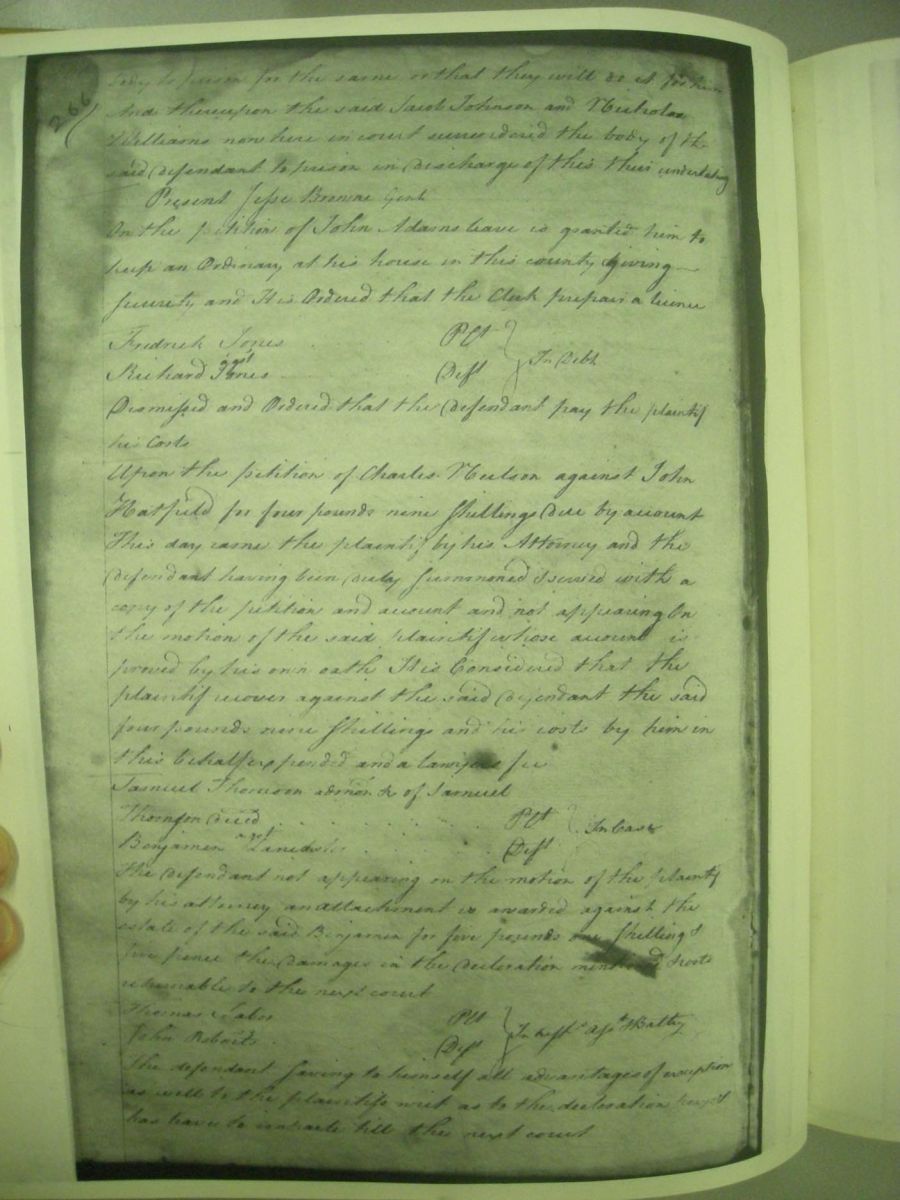 266
body to prison for the same or that they will do it for him
And thereupon the said Jacob Johnson and Nicholas
Williams now here in court surrendered the body of the
said Defendant to prison in Discharge of this their undertaking
Present Jesse Browne Gent
On the petition of John Adams leave is granted him to
keep an Ordinary at his house in this county giving
Security and It is Ordered that the Clerk prepair a licence
Fredrick Jones Plt
agst In Debt
Richard Jones Deft
Dismissed and Ordered that the Defendant pay the plaintif
his Costs
Upon the petition of Charles Neilson against John
Hatfield for four pounds nine Shillings Due by account
This day came the plaintif by his Attorney and the
Defendant having been duly Summoned & served with a
copy of the petition and account and not appearing On
the motion of the said plaintif whose account is
proved by his own oath It is Considered that the
plaintif recover against the said Defendant the said
four pounds nine Shillings and his costs by him in
this behalf expended and a lawyers fee
Samuel Thornton admor & of Samuel
Thornton Decd Plt
agst In Case
Benjamen Deft
The Defendant not appearing on the motion of the plaintif
by his attorney an attachment is awarded against the
estate of the said Benjamen for five pounds one Shillings
five pence the Damages in the Declaration mentioned & costs
returnable to the next court
Thomas Plt
In Asst & Battry
John Roberts Deft
The defendant Saving to himself all advantages of exception
as well to the plaintifs writ as to the declaration
has leave to imparle till the next court